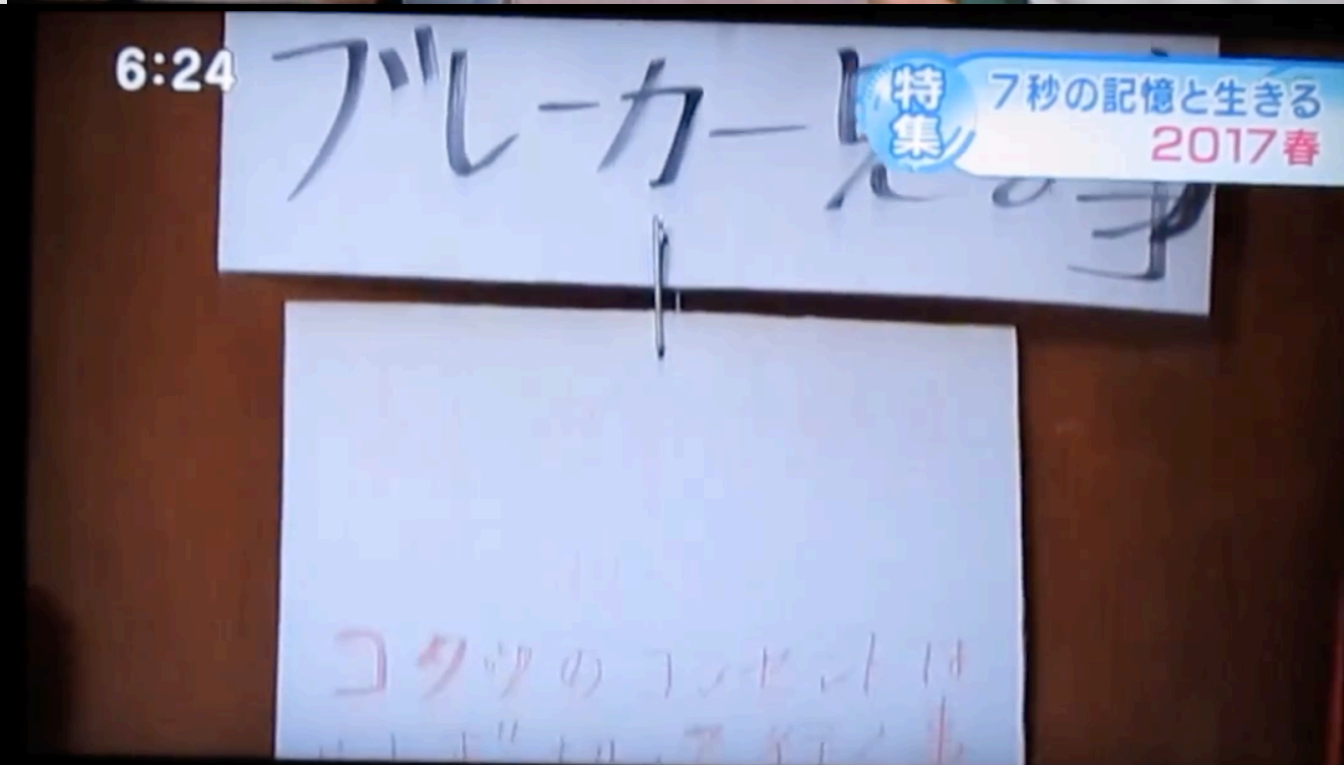 6:24
ブレーカー見る事
特集
7秒の記憶と生きる
2017春
コタツのコンセントは